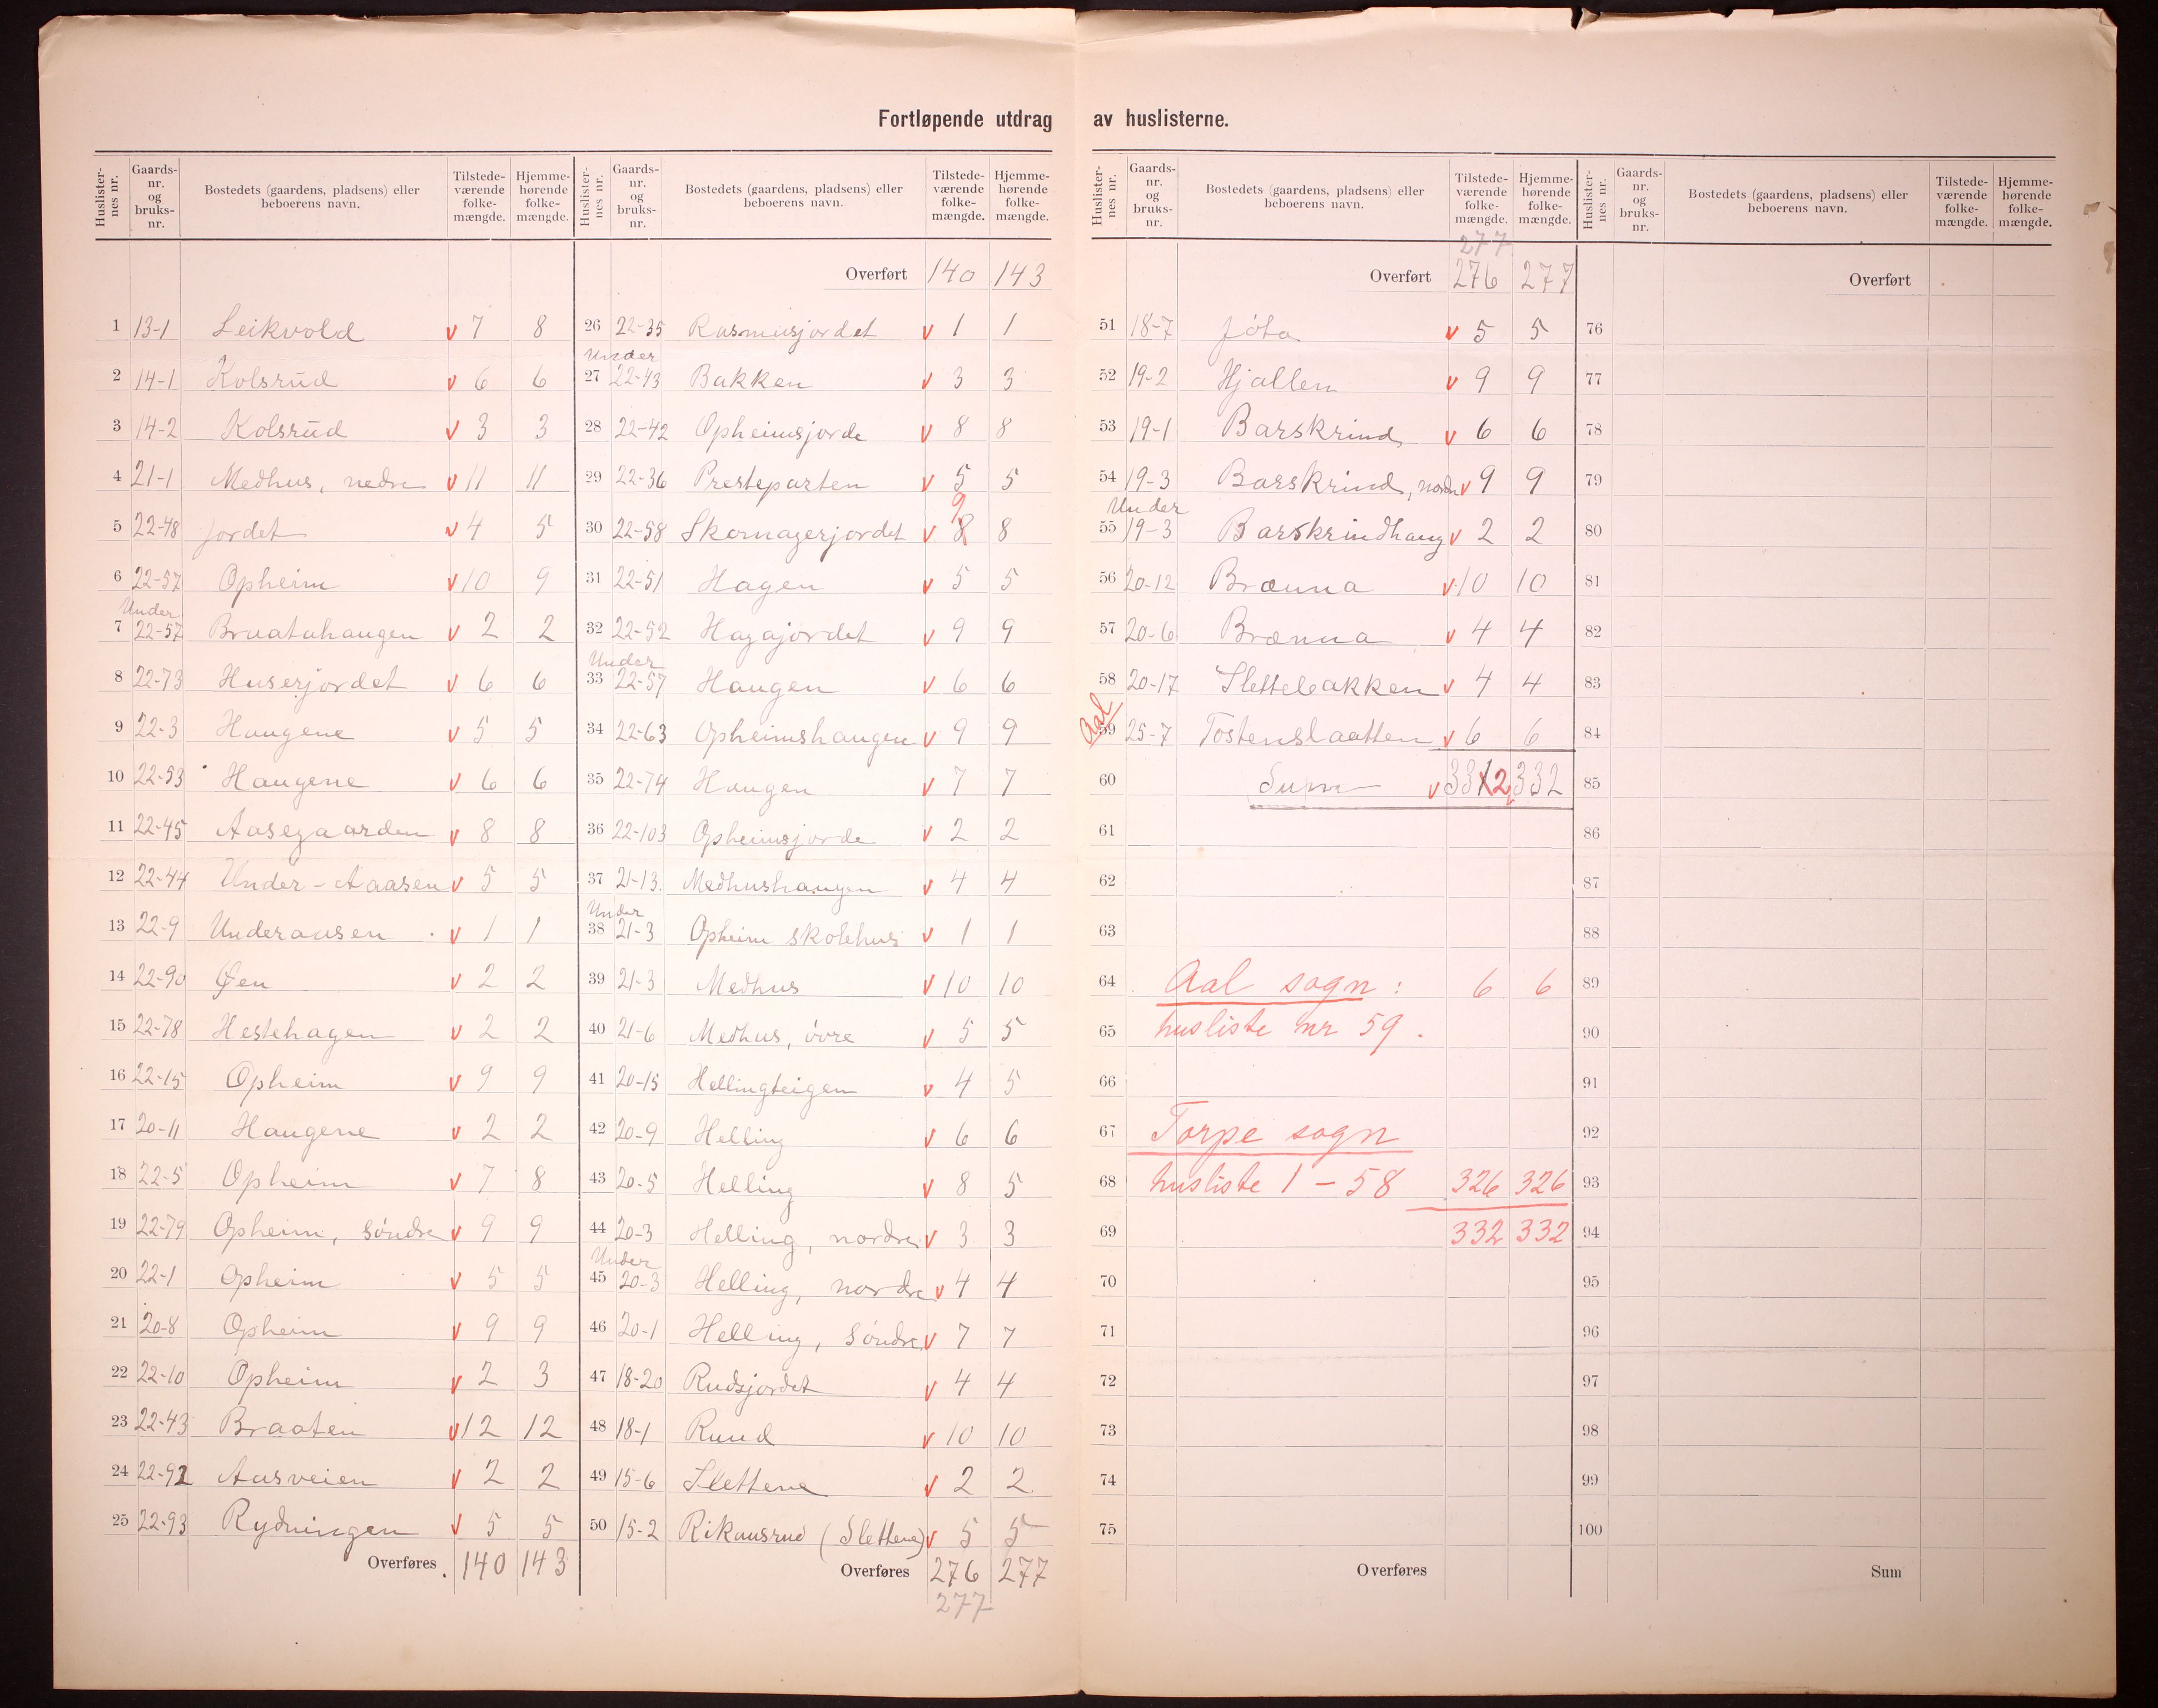 Fortløpende utdrag av huslisterne.
Huslisternes nr. Gaards-nr. og bruks-nr. Bostedets (gaardens, pladsens) eller beboerens navn. Tilstedeværende folkemængde. Hjemmehørende folkemængde.
1 13-1 Leikvold v 7 8
2 14-1 Kolsrud v 6 6
3 14-2 Kolsrud v 3 3
4 21-1 Medhus, nedre v 11 11
5 22-48 Jordet v 4 5
6 22-57 Opheim v 10 9
Under
7 22-57 Bruatahaugen v 2 2
8 22-73 Huserjordet v 6 6
9 22-3 Haugene v 5 5
10 22-53 Haugene v 6 6
11 22-45 Aasegaarden v 8 8
12 22-44 Under-Aaasen v 5 5
13 22-9 Underaasen v 1 1
14 22-90 Øen v 2 2
15 22-78 Hestehagen v 2 2
16 22-15 Opheim v 9 9
17 20-11 Haugene v 2 2
18 22-5 Opheim v 7 8
19 22-79 Opheim, søndre v 9 9
20 22-1 Opheim v 5 5
21 20-8 Opheim v 9 9
22 22-10 Opheim v 2 3
23 22-43 Braaten v 12 12
24 22-92 Aasveien v 2 2
25 22-93 Rydningen v 5 5
Overføres. 140 143
Huslisternes nr. Gaards-nr. og bruks-nr. Bostedets (gaardens, pladsens) eller beboerens navn. Tilstedeværende folkemængde. Hjemmehørende folkemængde.
Overført 140 143
26 22-35 Rasmusjordet v 1 1
Under
27 22-43 Bakken v 3 3
28 22-42 Opheimsjorde v 8 8
29 22-36 Presteparten v 5 5
9
30 22-58 Skomagerjordet v 8 8
31 22-51 Hagen v 5 5
32 22-52 Hagajordet v 9 9
Under
33 22-57 Haugen v 6 6
34 22-63 Opheimshaugen v 9 9
35 22-74 Haugen v 7 7
36 22-103 Opheimsjorde v 2 2
37 21-13. Medhushaugen v 4 4
Under
38 21-3 Opheim skolehus v 1 1
39 21-3 Medhus v 10 10
40 21-6 Medhus, övre v 5 5
41 20-15 Hellingteigen v 4 5
42 20-9 Helling v 6 6
43 20-5 Helling v 8 5
44 20-3 Helling, nordre v 3 3
Under
45 20-3 Helling, nordre v 4 4
46 20-1 Helling, søndre v 7 7
47 18-20 Rudsjordet v 4 4
48 18-1 Ruud v 10 10
49 15-6 Slettene v 2 2
50 15-2 Rikansrud (Slettene) v 5 5
Overføres 276 277
277
Huslisternes nr. Gaards-nr. og bruks-nr. Bostedets (gaardens, pladsens) eller beboerens navn. Tilstedeværende folkemængde. Hjemmehørende folkemængde.
277
Overført 276 277
51 18-7 Jóta v 5 5
52 19-2 Hjallen v 9 9
53 19-1 Barskrind v 6 6
54 19-3 Barskrind, nordre v 9 9
Under
55 19-3 Barskrindhaug v 2 2
56 20-12 Brænna v 10 10
57 20-6 Brænna v 4 4
58 20-17 Slettebakken v 4 4
Aal
59 25-7 Tostenslaatten v 6 6
60 Sum v 3312 332
61
62
63
64 Aal sogn: 6 6
65 husliste nr 59.
66
67 Torpe sogn
68 husliste 1 - 58 326 326
69 332 332
70
71
72
73
74
75
Overføres
Huslisternes nr. Gaards-nr. og bruks-nr. Bostedets (gaardens, pladsens) eller beboerens navn. Tilstedeværende folkemængde. Hjemmehørende folkemængde.
Overført
76
77
78
79
80
81
82
83
84
85
86
87
88
89
90
91
92
93
94
95
96
97
98
99
100
Sum